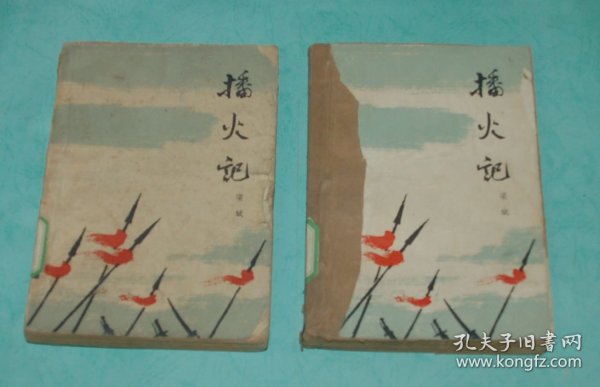 播火記
梁斌
播火記
梁斌
孔夫子旧书网
www.kongfz.com